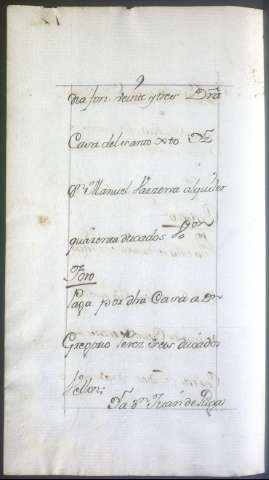 9
dia fon. veinte y tres Dha
Casa del santo xto De
Dn Manuel Lazarra alquiler
quarenta ducados Por
Foro
Paga por dha Casa a Dn
Gregorio Perez treso ducados
Vellon;
Ya Dn Juan de Puga